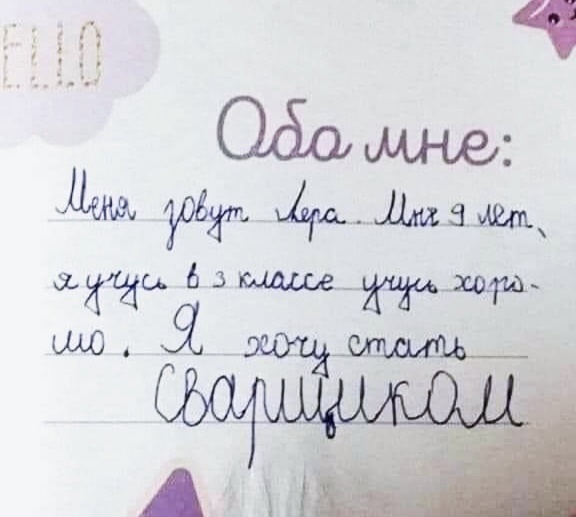 ELLO
Обо мне:
Меня зовут Лера. Мне 9 лет,
я учусь в 3 классе учусь хоро-
шо. Я хочу стать
сварщиком